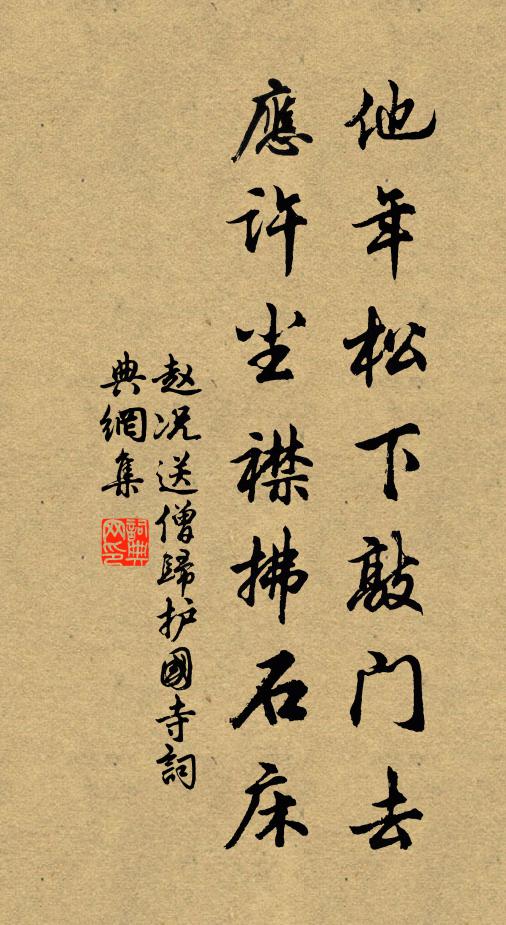 他年松下敲门去
應許尘襟拂石床
赵况送僧歸护國寺詞
典網集
詞典网印